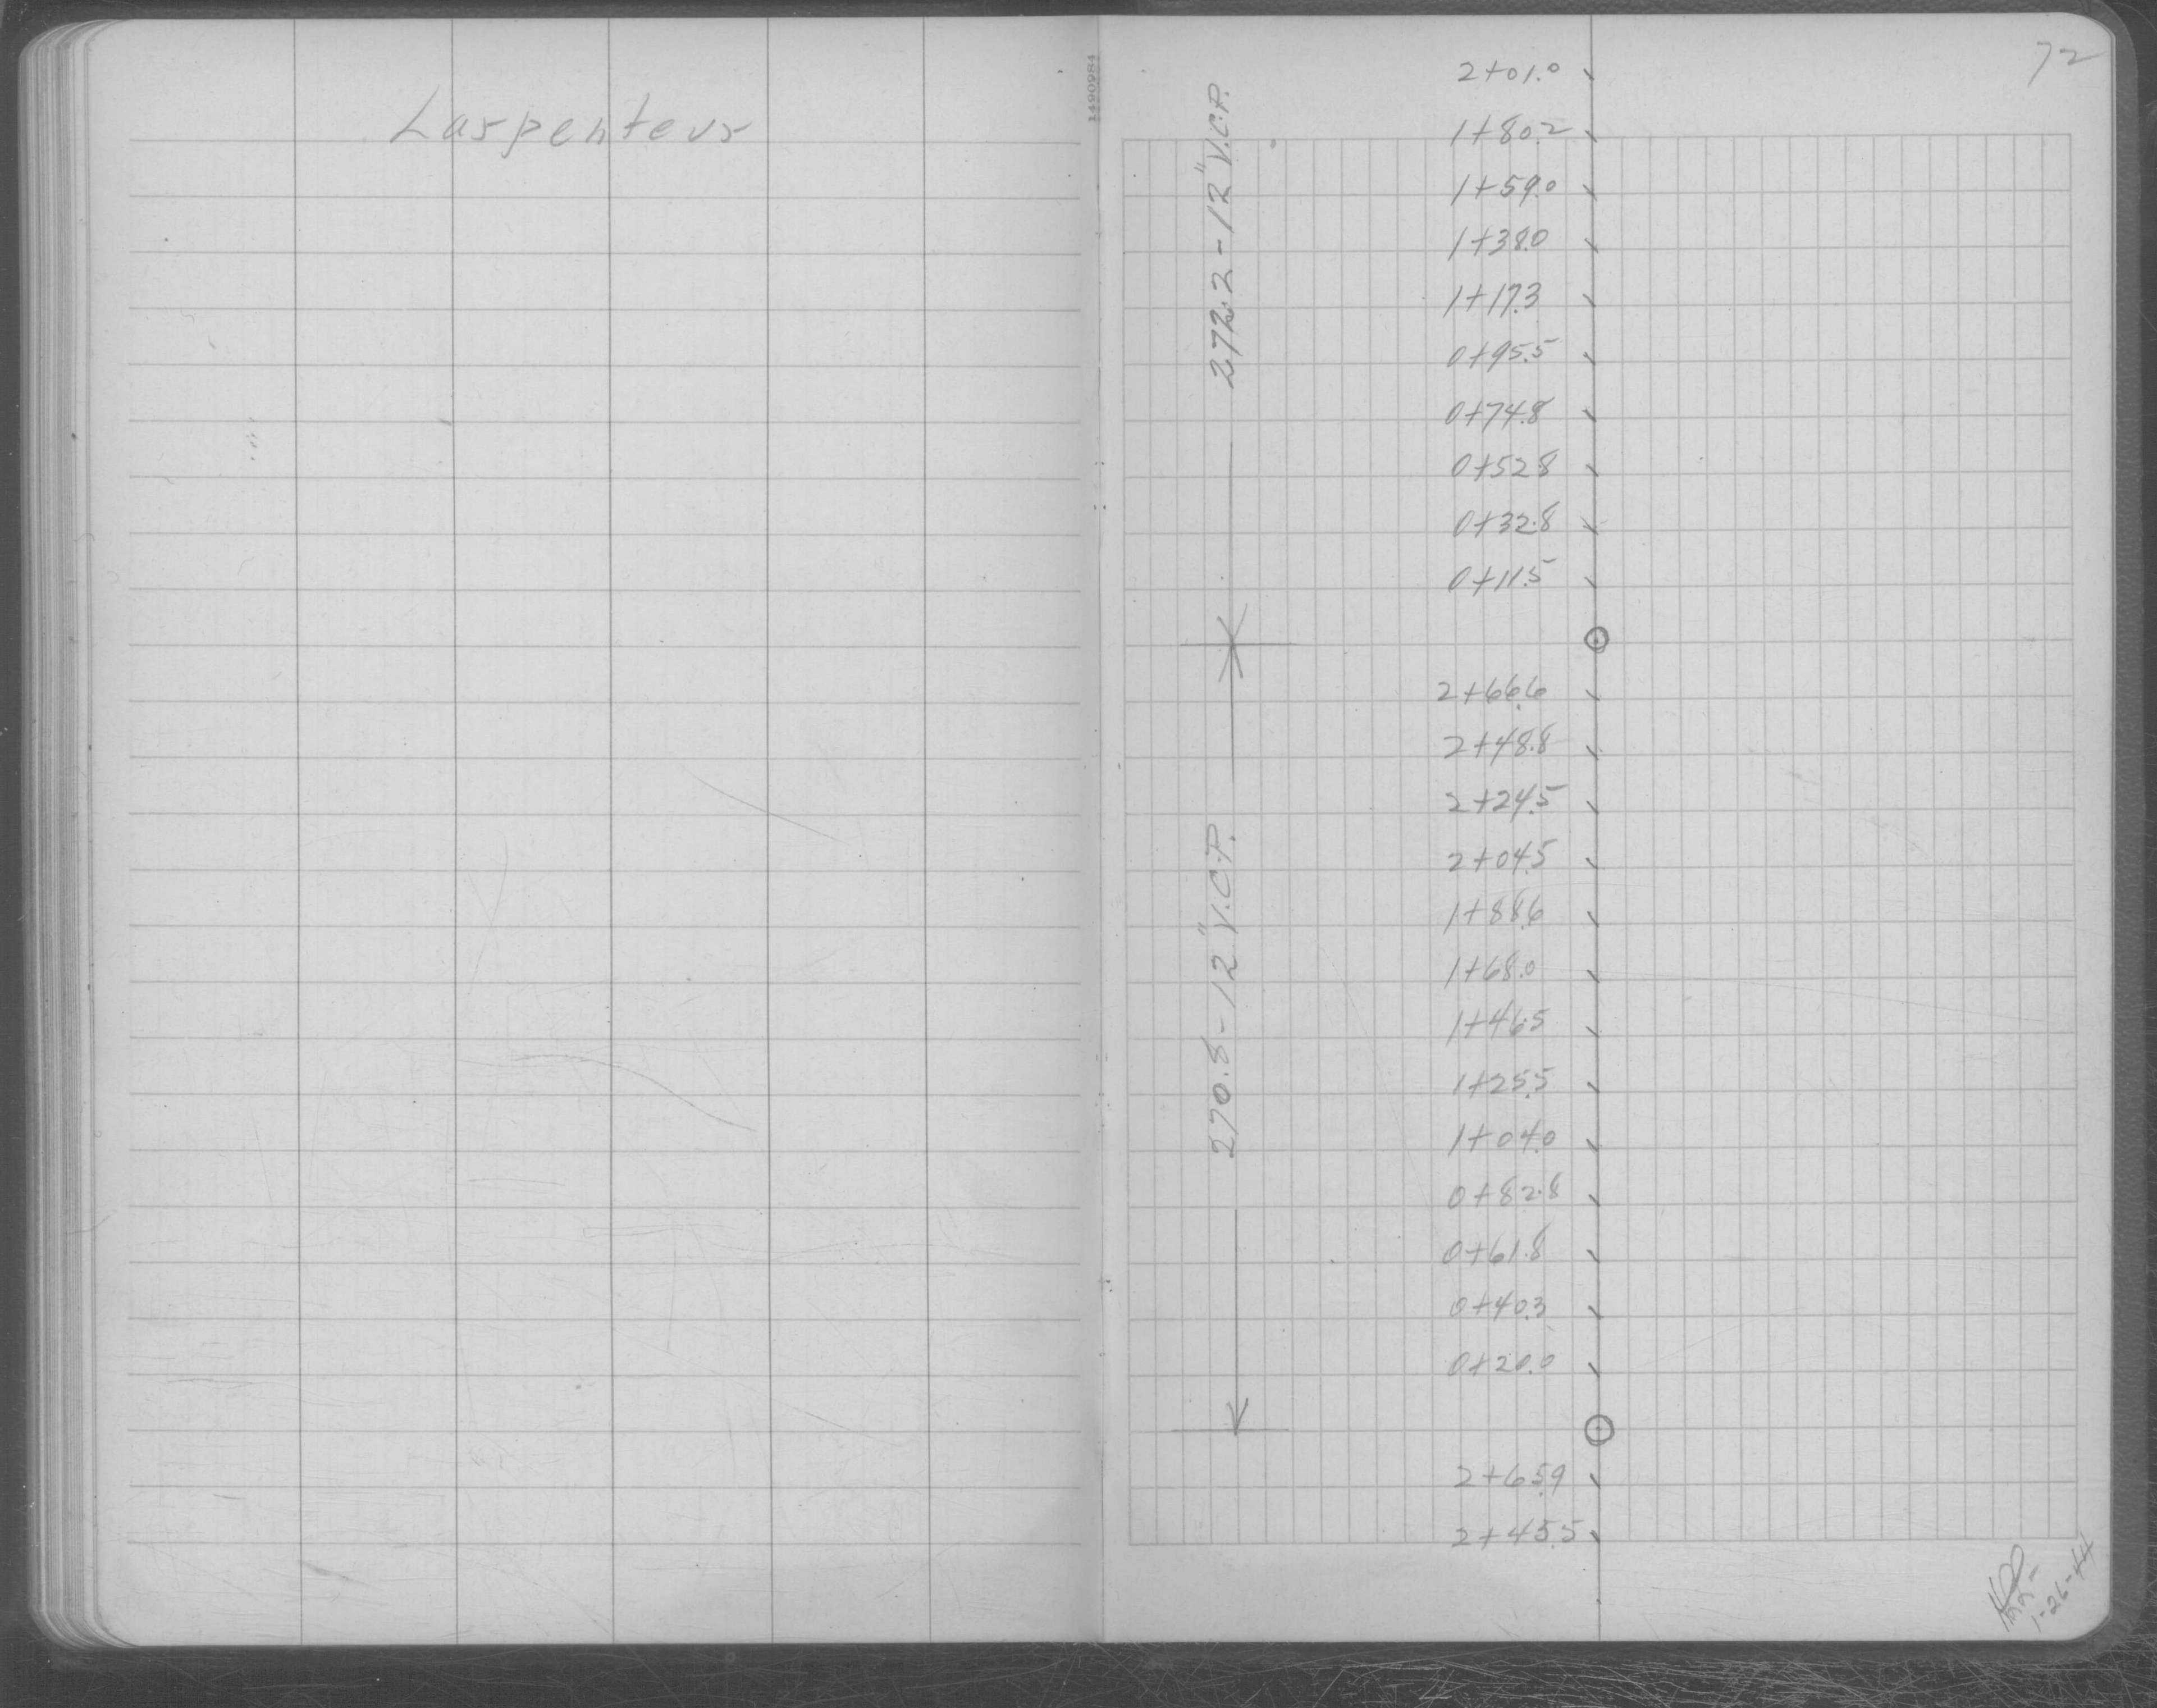 Laspenteur
72
1490984
2+01.0
1+80.2
1+59.0
1+38.0
1+17.3
0+95.5
0+74.8
0+52.8
0+32.8
0+11.5
272.2-12" V.C.P.
2+66.6
2+48.8
2+24.5
2+04.5
1+88.6
1+68.0
1+46.5
1+25.5
1+04.0
0+82.8
0+61.8
0+40.3
0+20.0
270.8-12" V.C.P.
2+65.9
2+45.5
1-26-44